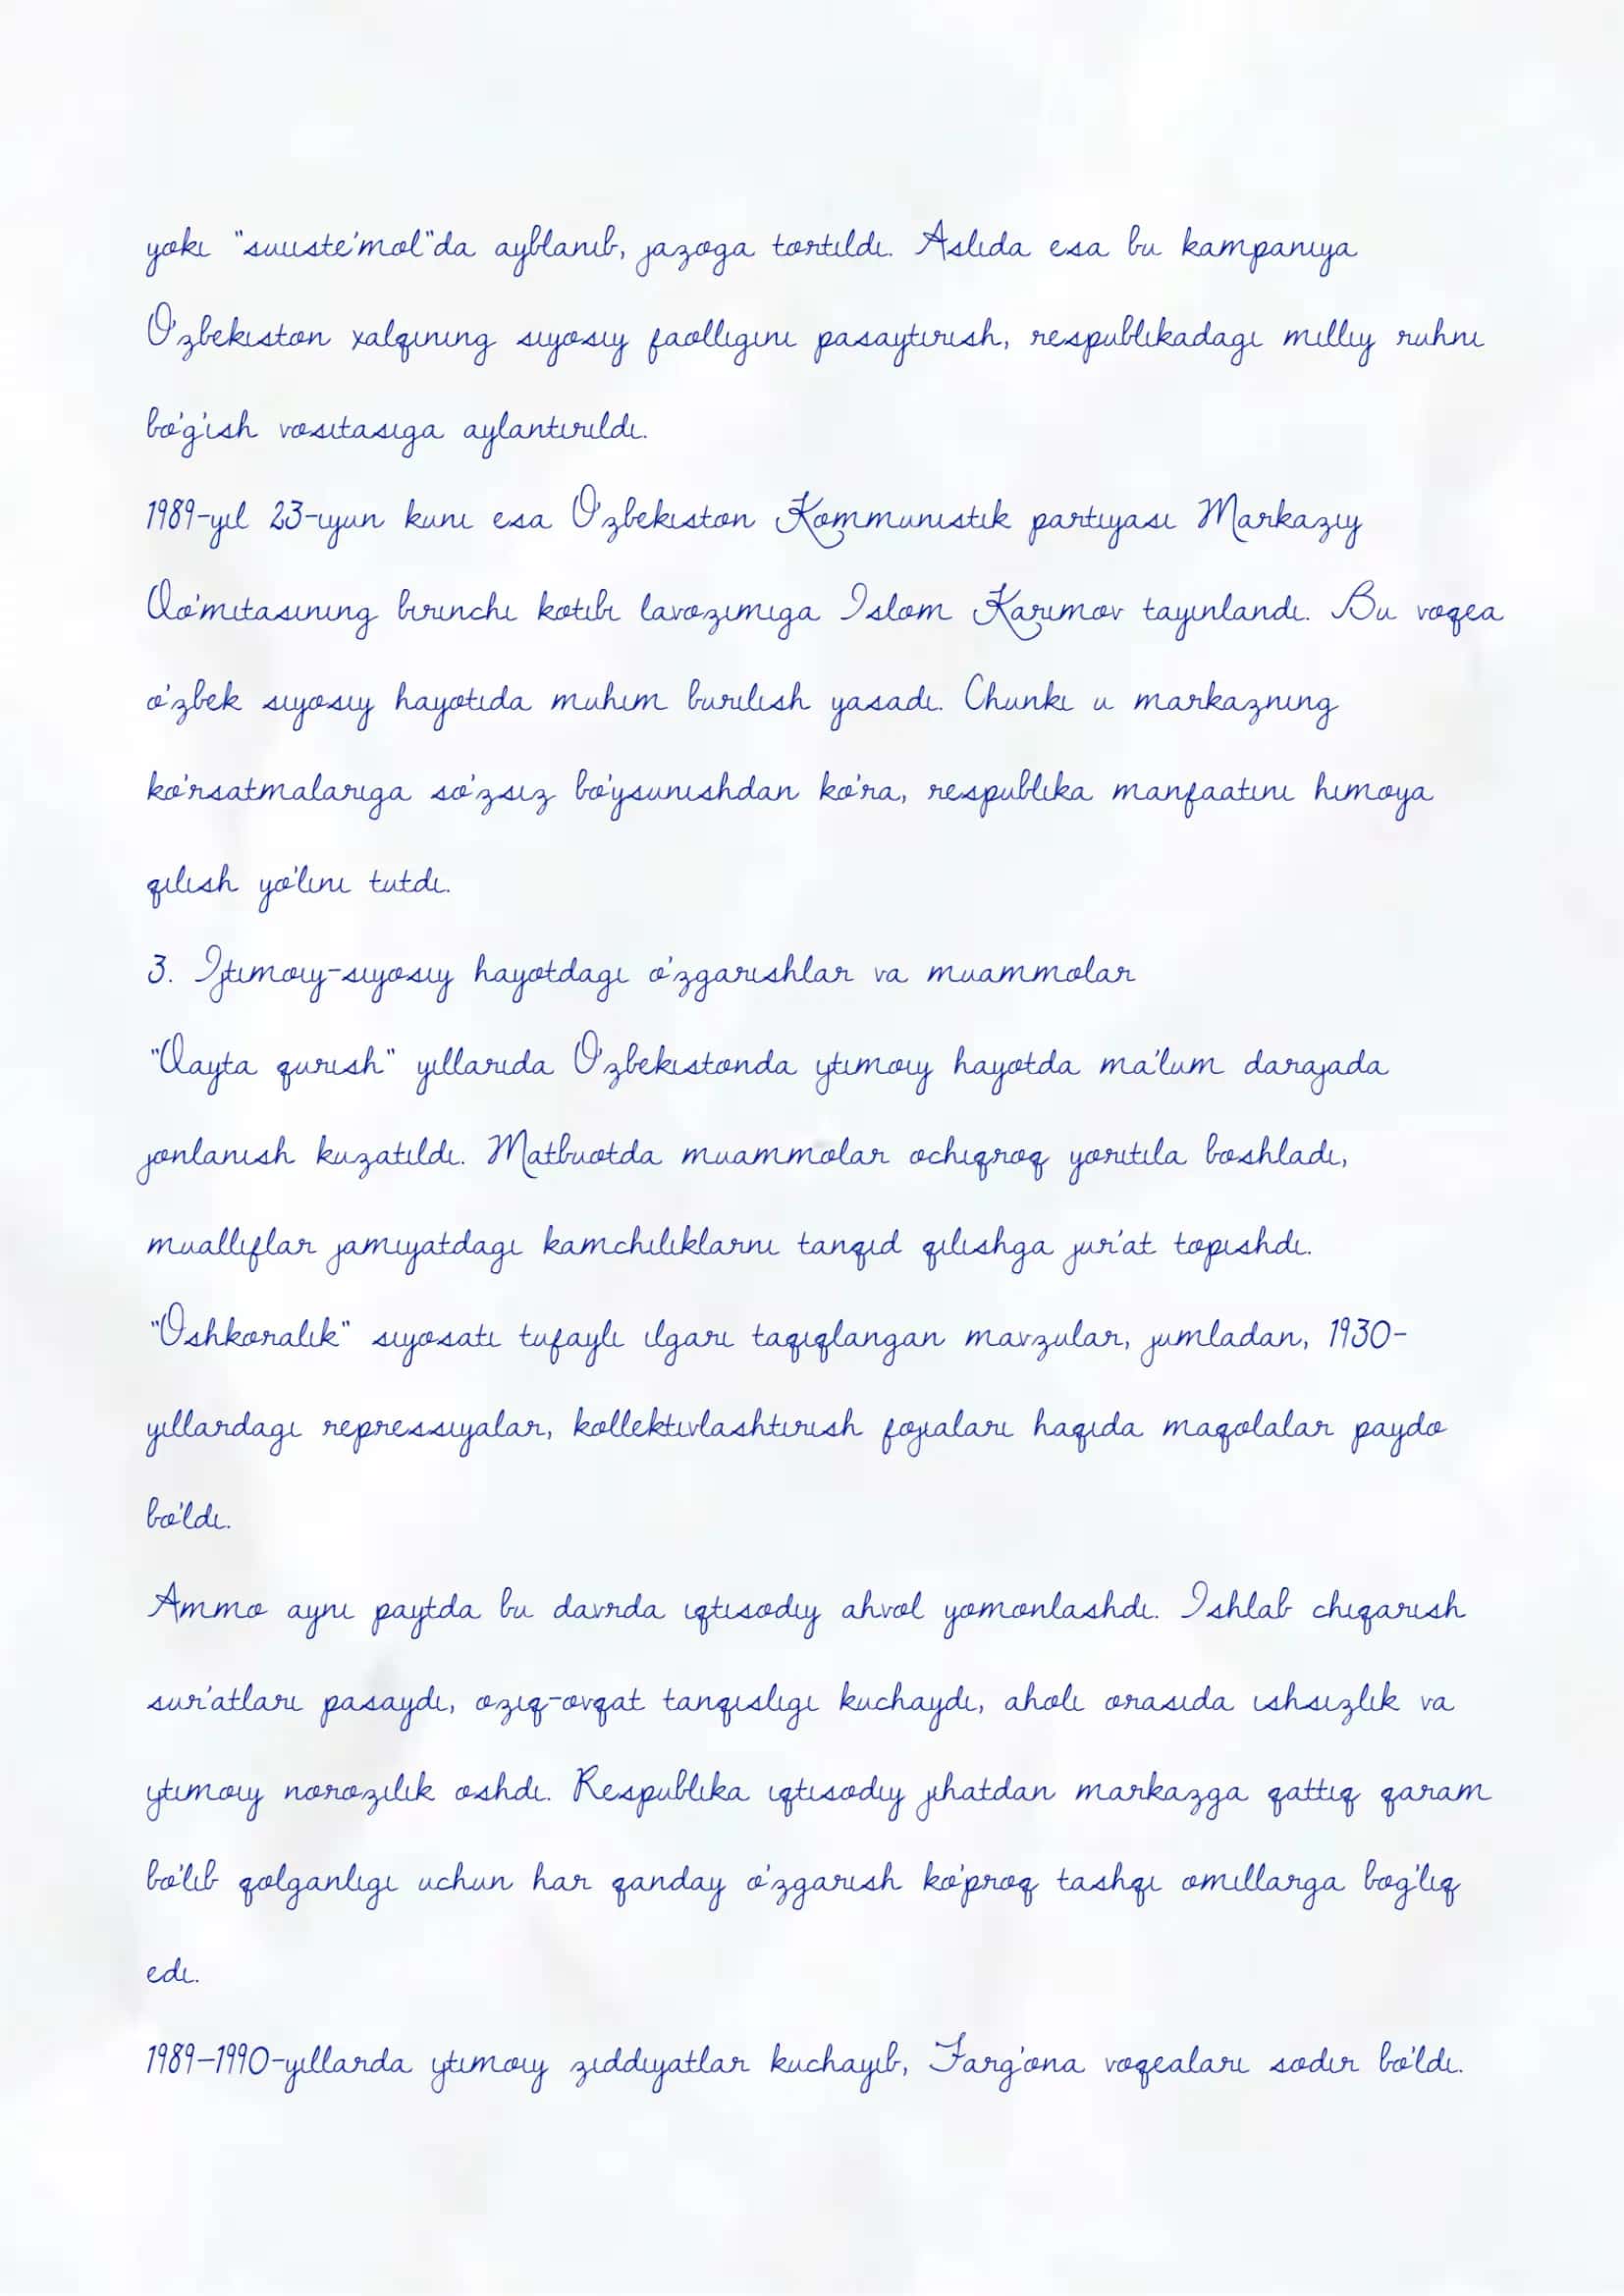 yoki "suiiste'mol"da ayblanib, jazoga tortildi. Aslida esa bu kampaniya
O'zbekiston xalqining siyosiy faolligini pasaytirish, respublikadagi milliy ruhni
bo'g'ish vositasiga aylantirildi.
1989-yil 23-iyun kuni esa O'zbekiston Kommunistik partiyasi Markaziy
Qo'mitasining birinchi kotibi lavozimiga Islom Karimov tayinlandi. Bu voqea
o'zbek siyosiy hayotida muhim burilish yasadi. Chunki u markazning
ko'rsatmalariga so'zsiz bo'ysunishdan ko'ra, respublika manfaatini himoya
qilish yo'lini tutdi.
3. Ijtimoiy-siyosiy hayotdagi o'zgarishlar va muammolar
"Qayta qurish" yillarida O'zbekistonda ijtimoiy hayotda ma'lum darajada
jonlanish kuzatildi. Matbuotda muammolar ochiqroq yoritila boshladi,
mualliflar jamiyatdagi kamchiliklarni tanqid qilishga jur'at topishdi.
"Oshkoralik" siyosati tufayli ilgari taqiqlangan mavzular, jumladan, 1930-
yillardagi repressiyalar, kollektivlashtirish fojialari haqida maqolalar paydo
bo'ldi.
Ammo ayni paytda bu davrda iqtisodiy ahvol yomonlashdi. Ishlab chiqarish
sur'atlari pasaydi, oziq-ovqat tanqisligi kuchaydi, aholi orasida ishsizlik va
ijtimoiy norozilik oshdi. Respublika iqtisodiy jihatdan markazga qattiq qaram
bo'lib qolganligi uchun har qanday o'zgarish ko'proq tashqi omillarga bog'liq
edi.
1989–1990-yillarda ijtimoiy ziddiyatlar kuchayib, Farg'ona voqealari sodir bo'ldi.